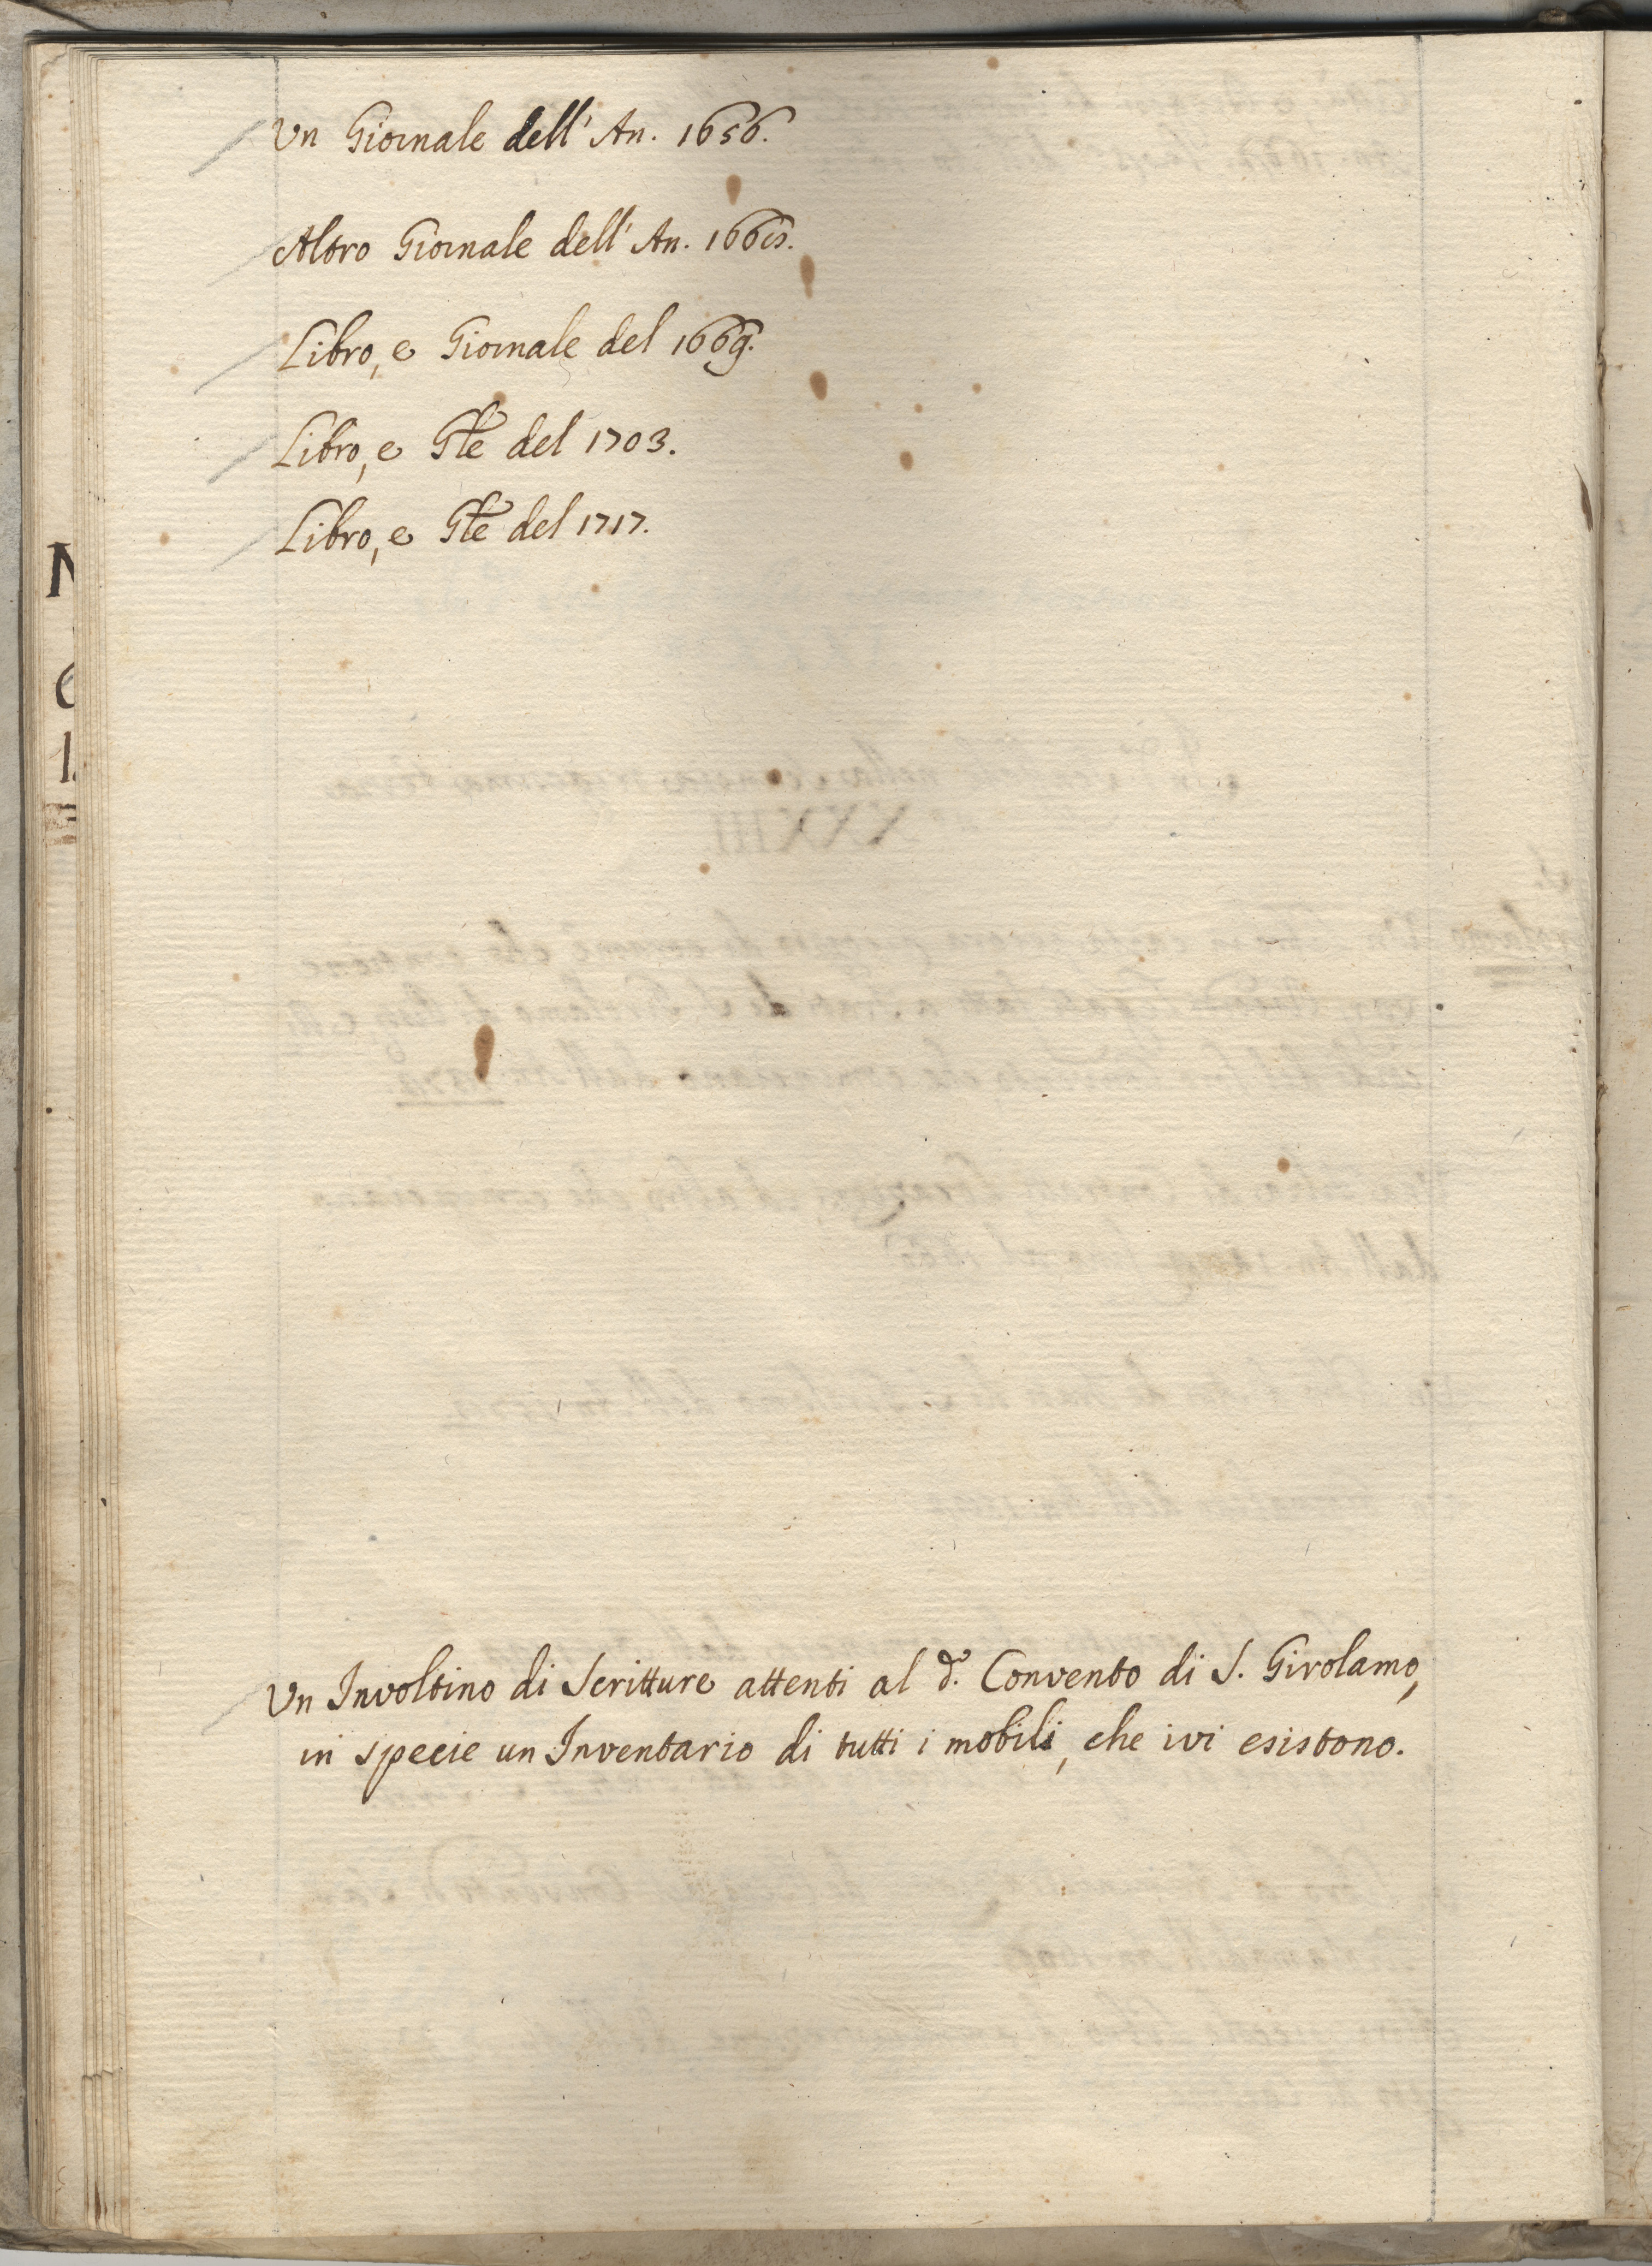 Un Giornale dell' An. 1656.
Altro Giornale dell' An. 1665.
Libro, e Giornale del 1669.
Libro, e Gle del 1703.
Libro, e Gle del 1717.
Un Involtino di Scritture attenti al d.º Convento di S. Girolamo,
in specie un Inventario di tutti i mobili, che ivi esistono.